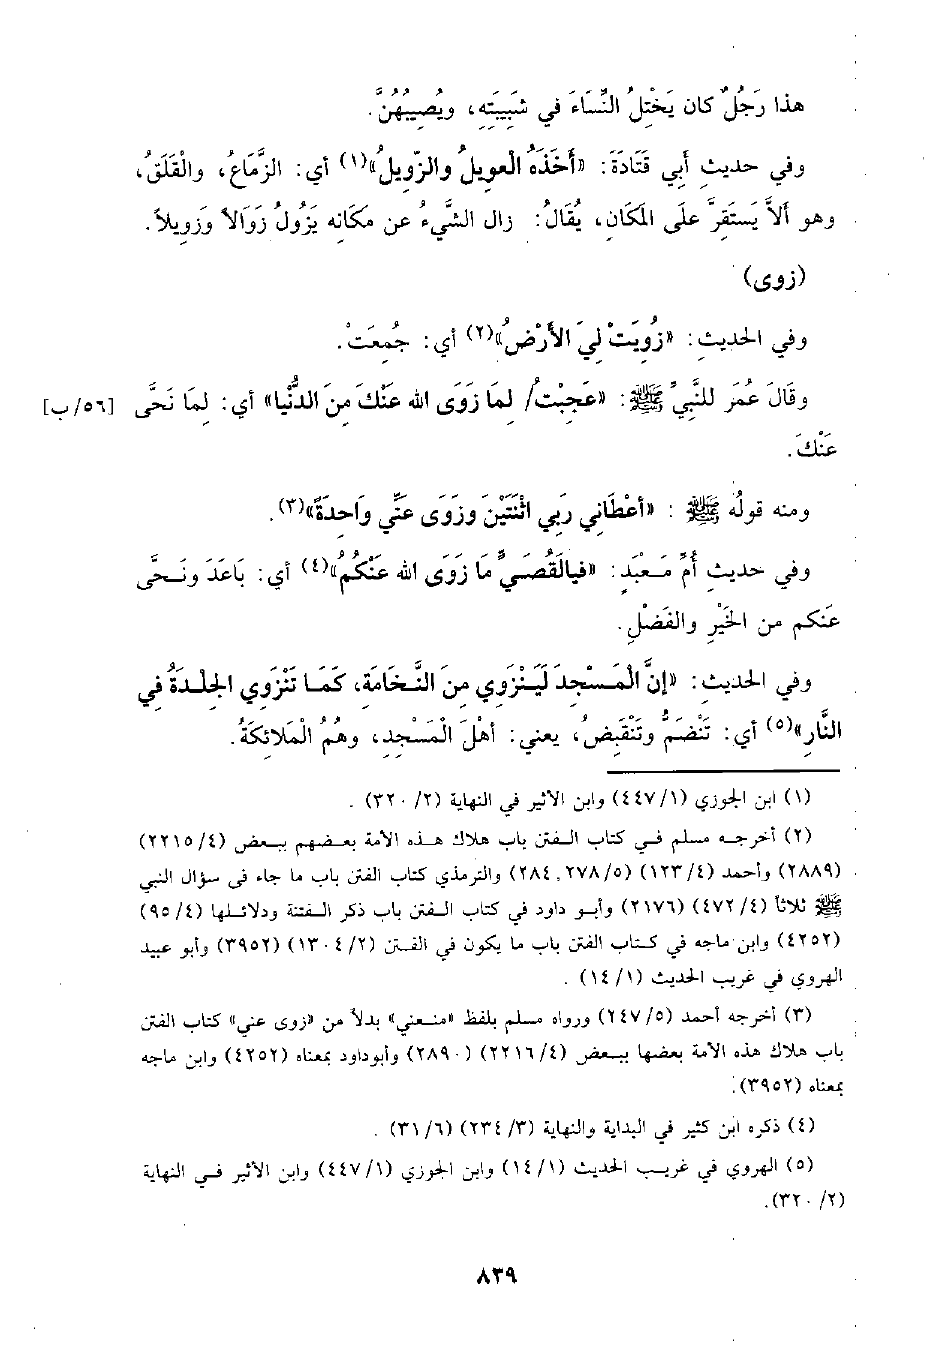 هذا رَجُلٌ كان يَخْتِلُ النِّسَاءَ في شَبِيبَتِهِ، ويُصِيبُهُنَّ.
وفي حديثِ أَبِي قَتَادَةَ: «أَخَذَهُ الْعوِيلُ والزّوِيلُ»(١) أي: الزَّمَاعُ، والْقَلَقُ،
وهو أَلاَّ يَستَقِرَّ علَى المَكَانِ، يُقَالُ: زال الشَّيءُ عن مكَانِه يَزُولُ زَوَالاً وَزَوِيلاً.
(زوى)
وفي الحديثِ: «زُوِيَتْ لِيَ الأَرْضُ»(٢) أي: جُمِعَتْ.
وقَالَ عُمَر للنَّبِيِّ ﷺ: «عَجِبْتُ/ لِمَا زَوَى الله عَنْكَ مِنَ الدُّنْيَا» أي: لِمَا نَحَّى [٥٦/ب]
عَنْكَ.
ومنه قولُه ﷺ : «أَعْطَانِي رَبِي اثْنَتَيْنِ وَزَوَى عَنِّي وَاحِدَةً»(٣).
وفي حديثِ أُمِّ مَعْبَدٍ: «فيالَقُصَيٍّ مَا زَوَى الله عنْكُمُ»(٤) أي: بَاعَدَ ونَحَّى
عَنكم من الخَيْرِ والفَضْلِ.
وفي الحديثِ: «إنَّ الْمَسْجِدَ لَيَنْزَوِي مِنَ النَّخَامَةِ، كَمَا تَنْزَوِي الجِلْدَةُ فِي
النَّارِ»(٥) أي: تَنْضَمُّ وتَنْقَبِضُ، يعنِي: أهْلَ الْمَسْجِدِ، وهُمُ الْمَلاَئِكَةُ.
(١) ابن الجوزي (٤٤٧/١) وابن الأثير في النهاية (٣٢٠/٢) .
(٢) أخرجه مسلم في كتاب الفتن باب هلاك هذه الأمة بعضهم ببعض (٢٢١٥/٤)
(٢٨٨٩) وأحمد (١٢٣/٤) (٢٧٨/٥، ٢٨٤) والترمذي كتاب الفتن باب ما جاء فى سؤال النبي
ﷺ ثلاثاً (٤٧٢/٤) (٢١٧٦) وأبو داود في كتاب الفتن باب ذكر الفتنة ودلائلها (٩٥/٤)
(٤٢٥٢) وابن ماجه في كتاب الفتن باب ما يكون في الفتن (١٣٠٤/٢) (٣٩٥٢) وأبو عبيد
الهروي في غريب الحديث (١٤/١) .
(٣) أخرجه أحمد (٢٤٧/٥) ورواه مسلم بلفظ «منعني» بدلاً من «زوى عني» كتاب الفتن
باب هلاك هذه الأمة بعضها ببعض (٢٢١٦/٤) (٢٨٩٠) وأبوداود بمعناه (٤٢٥٢) وابن ماجه
بمعناه (٣٩٥٢).
(٤) ذكره ابن كثير في البداية والنهاية (٢٣٤/٣) (٣١/٦) .
(٥) الهروي في غريب الحديث (١٤/١) وابن الجوزي (٤٤٧/١) وابن الأثير في النهاية
(٣٢٠/٢).
٨٣٩